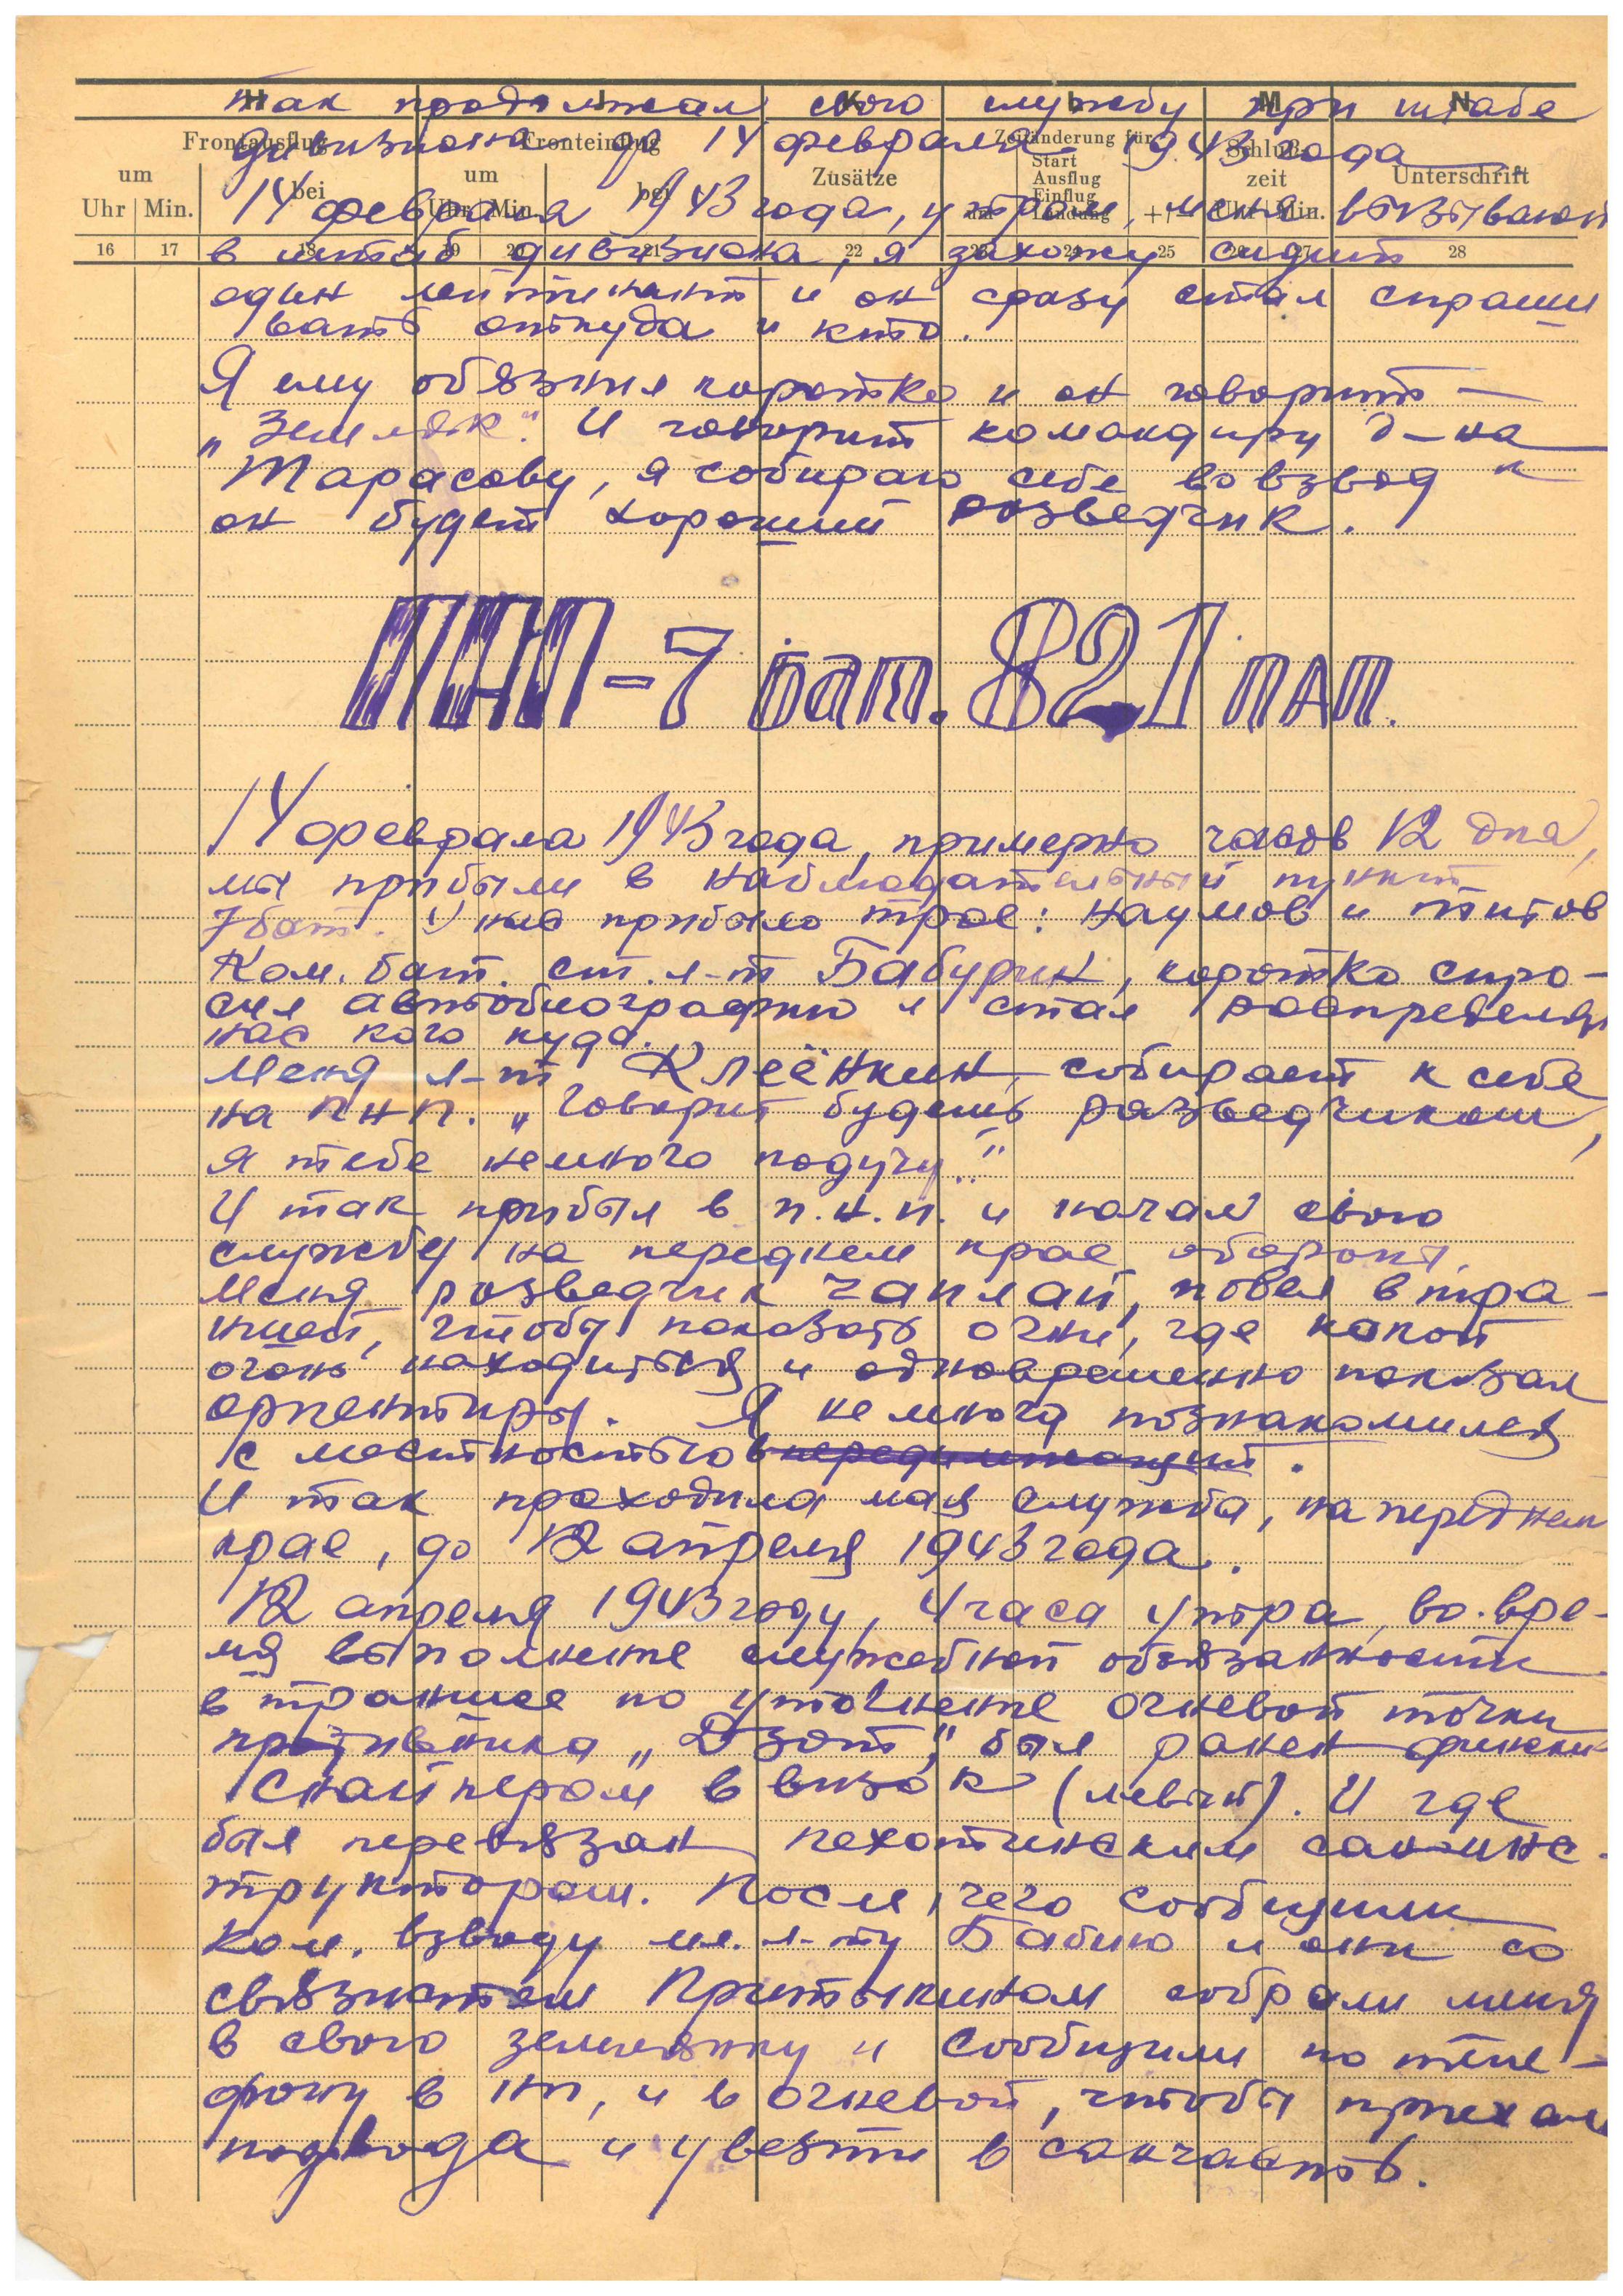 H J K L M N
так продолжал свою службу при штабе
Frontausflug Fronteinflug Zeitänderung für Schluß-
дивизиона до 14 февраля 1943 года
um bei um bei Zusätze Start Ausflug Einflug Landung zeit Unterschrift
Uhr Min. Uhr Min. um +|- Uhr Min.
14 февраля 1943 года, утром, меня вызывают
16 17 18 19 20 21 22 23 24 25 26 27 28
в штаб дивизиона, я захожу сидит
один лейтенант и он сразу стал спраши
вать откуда и кто.
Я ему обязнил коротко и он говорит —
„Земляк". И говорит командиру д-на
Тарасову, я собираю себе во взвод и
он будет хороший розведчик.
ПНП-7 бат. 821 пап.
14 февраля 1943 года, примерно часов 12 дня,
мы прибыли в наблюдательный пункт
7 бат. У нас прибыло трое: Наумов и Титов
Ком. бат. ст. л-т Бабурин, коротко спро-
сил автобиографию и стал распределять
нас кого куда.
Меня л-т Клеёнкин, собирает к себе
на ПНП. „Говорит будешь разведчиком,
я тебе немного подучу.."
И так прибыл в п.н.п. и начал свою
службу на переднем крае обороны.
Меня розведчик Чаплай, повел в тра-
ншей, чтобы показать огни, где какой
огонь находиться и одновременно показал
ориентиры. Я немного познакомился
с местностью впередилежащит.
И так проходила моя служба, на переднем
крае, до 12 апреля 1943 года.
12 апреля 1943 году, 4 часа утра, во вре-
мя выполнение служебной обязанности
в траншее по уточнение огневой точки
противника „Дзот", был ранен финским
снайпером в висок (левый). И где
был перевязан пехотинским санинс-
труктором. После, чего сообщили
ком. взводу мл. л-ту Бабию и они со
связистом Притыкином собрали меня
в свою землянку и сообщили по теле-
фону в нп, и в огневой, чтобы приехала
подвода и увезти в санчасть.